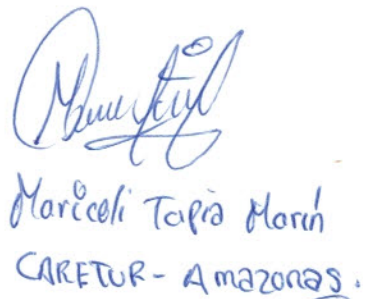 Mariceli Tapia Marín
CARETUR - Amazonas.